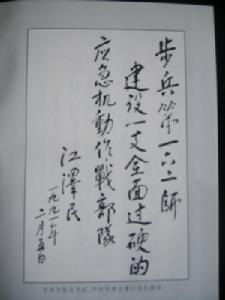 步兵第一六二師
建设一支全面过硬的
应急机動作戰部隊
江澤民
一九九一年
二月五日